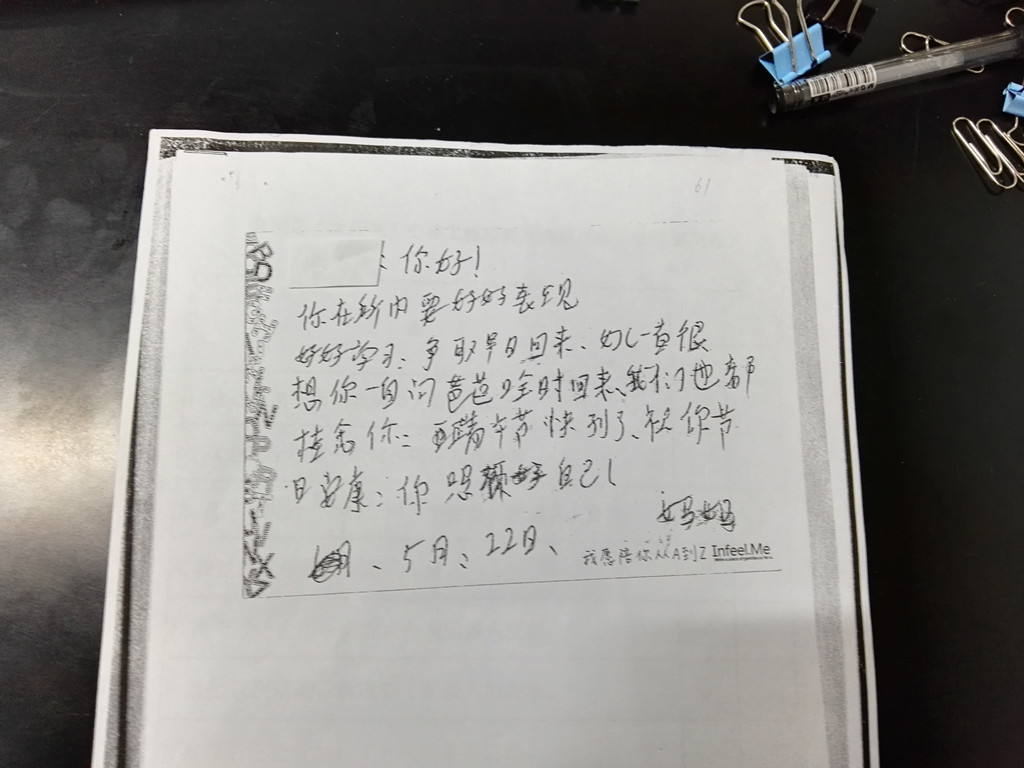 61
：你好！
你在所内要好好表现
好好学习、争取早日回来、女儿一直很
想你一直问爸爸啥时回来、我们也都
挂念你： 端午节快到了、祝你节
日安康：你照顾好自己！
妈妈
、5月、22日、
我愿陪你从A到Z Infeel.Me